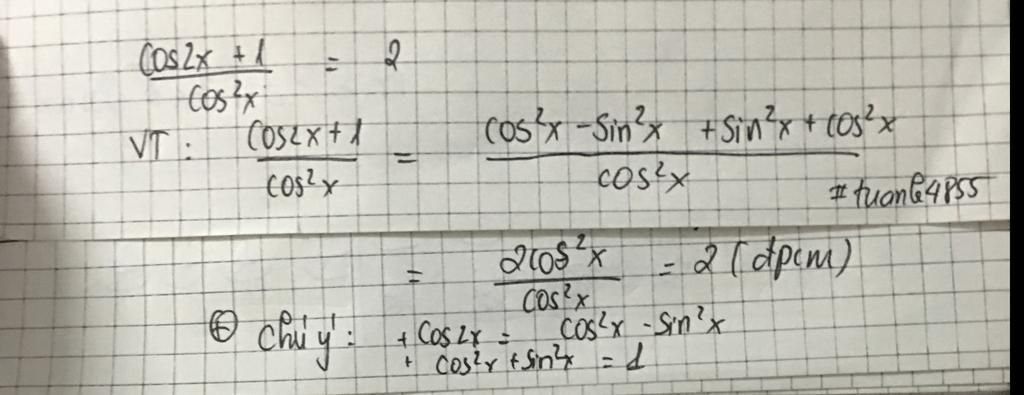 cos2x + 1 / cos²x = 2
VT: cos2x + 1 / cos²x = cos²x - sin²x + sin²x + cos²x / cos²x
#tuanlê4855
= 2cos²x / cos²x = 2 (đpcm)
⊕ chú ý: + cos2x = cos²x - sin²x
+ cos²x + sin²x = 1